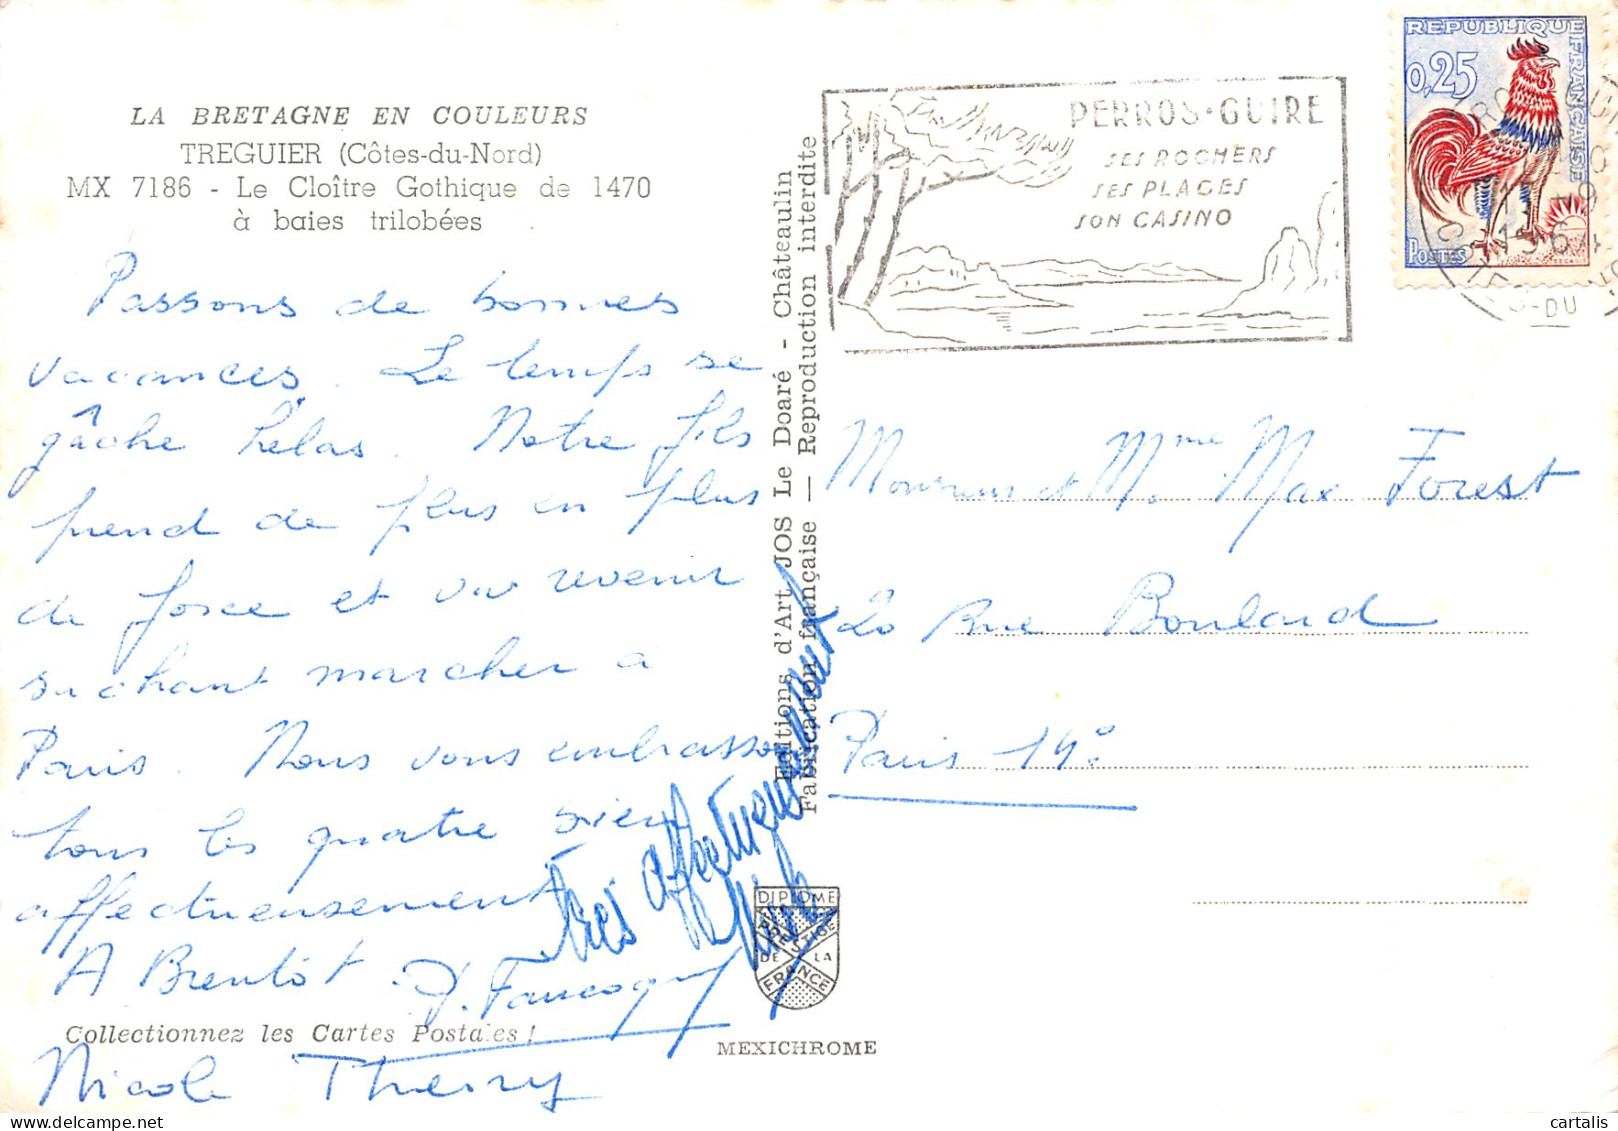 LA BRETAGNE EN COULEURS
TREGUIER (Côtes-du-Nord)
MX 7186 - Le Cloître Gothique de 1470
à baies trilobées
Passons de bonnes
vacances. Le temps se
gâche hélas. Notre fils
prend de plus en plus
de force et va revenir
sachant marcher à
Paris. Nous vous embrassons
tous les quatre bien
affectueusement
A Bientôt.
Nicole Thierry
très affectueusement
Collectionnez les Cartes Postales !
Editions d'Art JOS Le Doaré - Châteaulin
Fabrication française — Reproduction interdite
DIPLOME
PRESTIGE
DE LA
FRANCE
MEXICHROME
PERROS-GUIRE
SES ROCHERS
SES PLAGES
SON CASINO
REPUBLIQUE FRANÇAISE
0,25
POSTES
Monsieur et Mme Max Forest
20 Rue Boulard
Paris 14e
cartalis